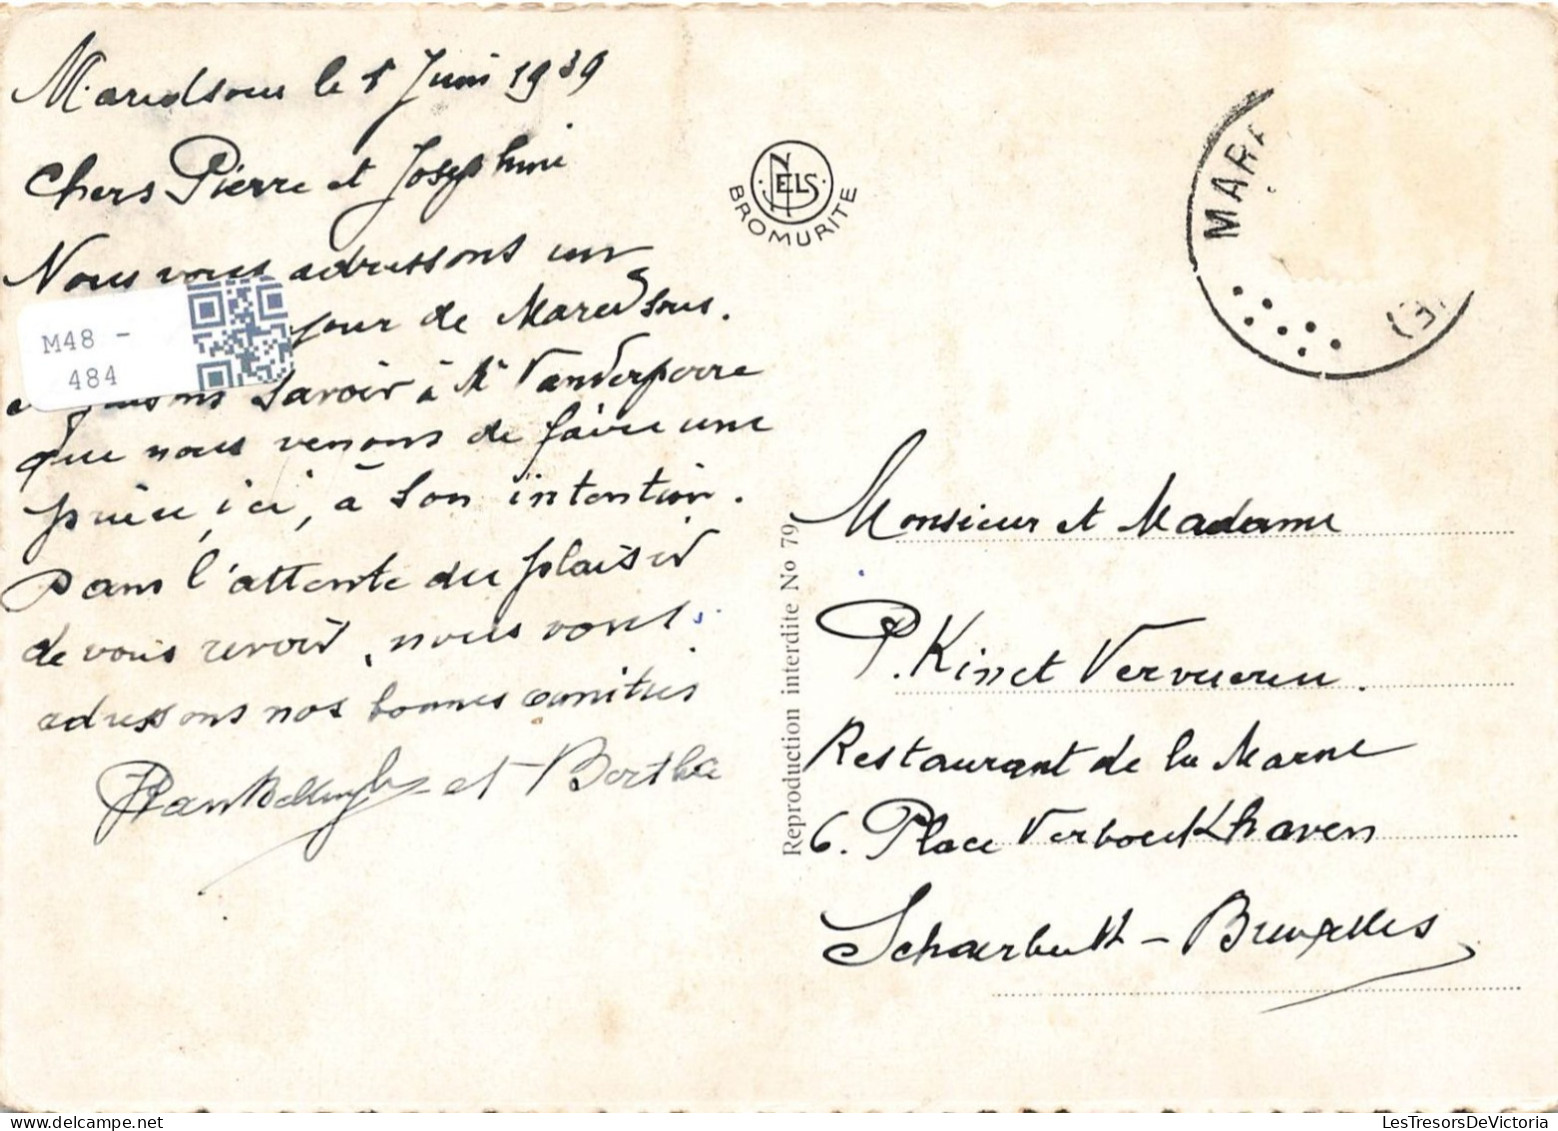 Maredsous le 1 Juin 1939
Chers Pierre et Josephine
Nous vous adressons un
jour de Maredsous.
faisons savoir à Mr Vanderperre
que nous venons de faire une
prière, ici, à son intention.
Dans l'attente du plaisir
de vous revoir, nous vous
adressons nos bonnes amitiés
et Berthe
M48 -
484
NELS
BROMURITE
Reproduction interdite No 79
MARE
Monsieur et Madame
P. Kinet Vervueren.
Restaurant de la Marne
6. Place Verboekhaven
Schaerbeek - Bruxelles
LesTresorsDeVictoria